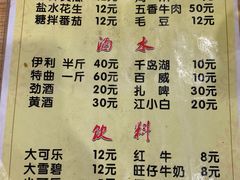 盐水花生 12元 五香牛肉 50元
糖拌番茄 12元 毛豆 12元
酒水
伊利 半斤 40元 千岛湖 10元
特曲 一斤 60元 百威 10元
劲酒 20元 扎啤 30元
黄酒 30元 江小白 20元
饮料
大可乐 12元 红牛 8元
大雪碧 12元 旺仔牛奶 8元